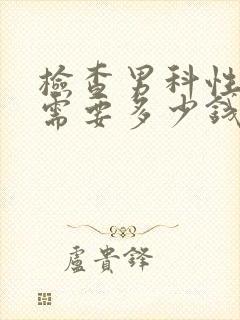 檢查男科性
需要多少錢
盧貴鋒